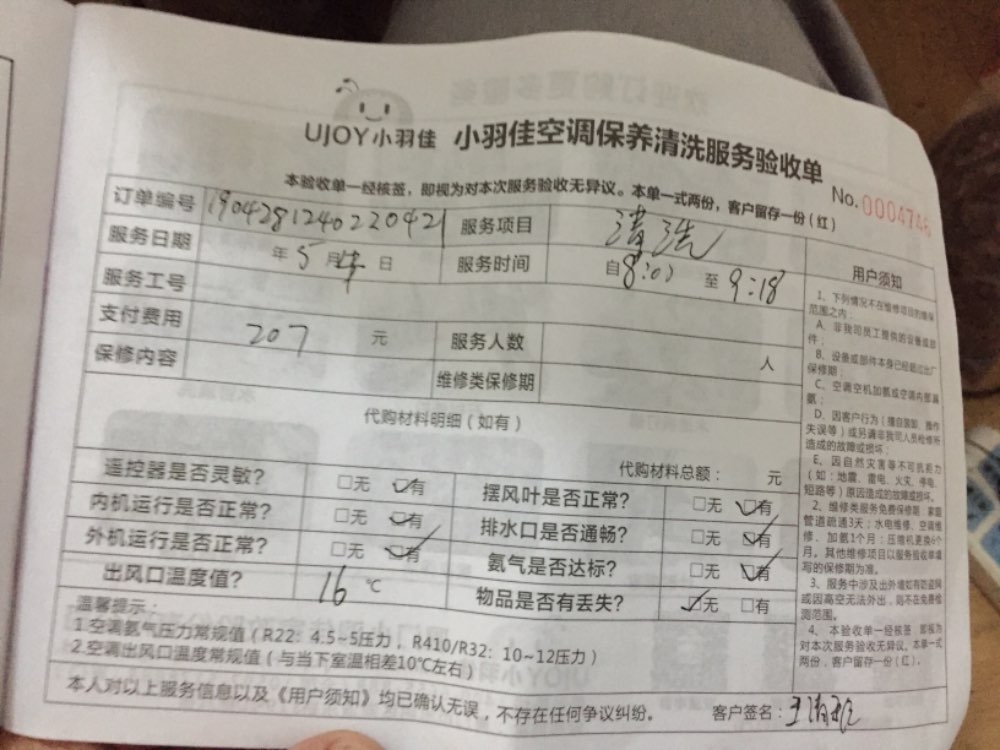 UJOY小羽佳 小羽佳空调保养清洗服务验收单
本验收单一经核签，即视为对本次服务验收无异议。本单一式两份，客户留存一份(红)
No. 0004746
订单编号 1904281240220421 服务项目 清洗
服务日期 年 5 月 日 服务时间 自 8:00 至 9:18
服务工号
支付费用 207 元 服务人数 人
保修内容 维修类保修期
代购材料明细(如有)
代购材料总额： 元
遥控器是否灵敏? □无 ☑有 摆风叶是否正常? □无 ☑有
内机运行是否正常? □无 ☑有 排水口是否通畅? □无 ☑有
外机运行是否正常? □无 ☑有 氨气是否达标? □无 ☑有
出风口温度值? 16 ℃ 物品是否有丢失? ☑无 □有
温馨提示：
1.空调氨气压力常规值(R22: 4.5~5压力，R410/R32: 10~12压力)
2.空调出风口温度常规值(与当下室温相差10℃左右)
本人对以上服务信息以及《用户须知》均已确认无误，不存在任何争议纠纷。 客户签名：
用户须知
1、下列情况不在维修项目的维保
范围之内：
A、非我司员工提供的设备或部
件；
B、设备或部件本身已经超过出厂
保修期；
C、空调空机加氨或空调内部漏
氨；
D、因客户行为(擅自装卸、操作
失误等)或另请非我司人员检修所
造成的故障或损坏；
E、因自然灾害等不可抗拒力
(如：地震、雷电、火灾、停电、
短路等)原因造成的故障或损坏。
2、维修类服务免费保修期：家庭
管道疏通3天；水电维修、空调维
修、加氨1个月；压缩机更换6个
月。其他维修项目以服务验收单填
写的保修期为准。
3、服务中涉及出外墙如有防盗网
或因高空无法外出，则不在免费检
测范围。
4、本验收单一经核签，即视为
对本次服务验收无异议。本单一式
两份，客户留存一份(红)。